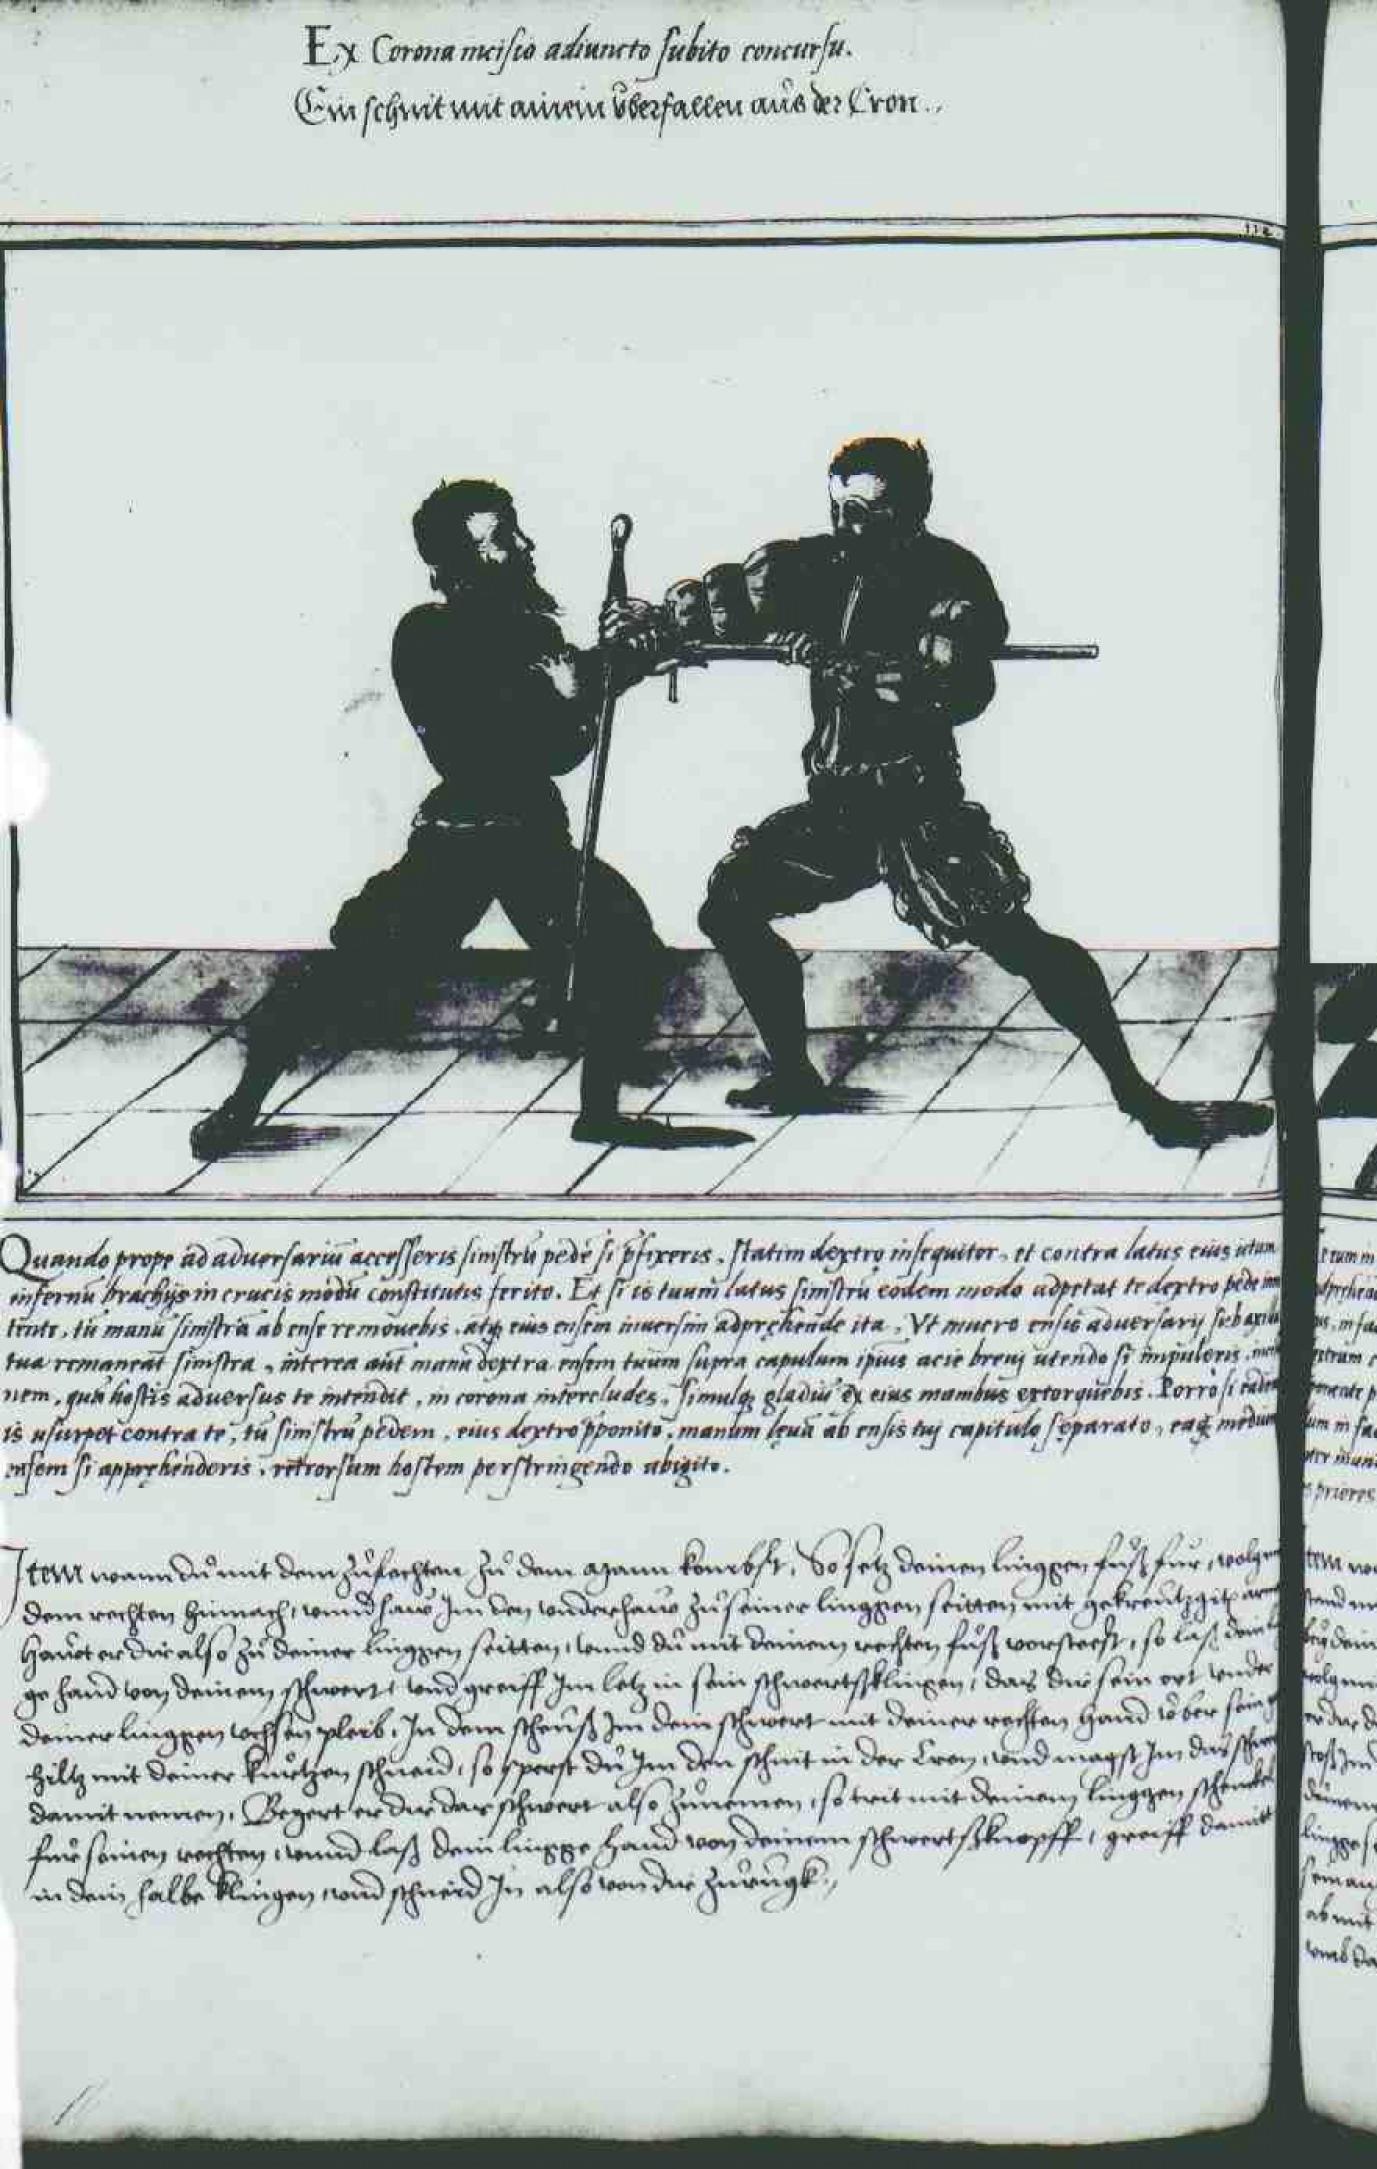 Ex Corona incisio adiuncto subito concursu.
Ein schnit mit ainem überfallen aus der Cron.,
112
Quando prope ad adversariū accesseris sinistrū pedē si p̄fixeris, statim dextro insequitor, et contra latus eius utcun
infernū brachijs in crucis modū constitutis ferito. Et si is tuum latus sinistrū eodem modo adpetat te dextro pede
tente, tu manū sinistrā ab ense removebis, atq; eius ensem inversim adprehende ita, Vt mucro ensis adversarij sub axilla
tua remaneat sinistra, interea aut manu dextra ensem tuum supra capulum ipsius acie brevj utendo si impuleris,
nem, quā hostis adversus te intendit, in corona intercludes, simulq; gladiū ex eius manibus extorquebis. Porrò si eadem
is usurpet contra te, tu sinistrū pedem, eius dextro p̄ponito, manum levā ab ensis tuj capitulo separato, eaq; medium
ensem si apprehenderis, retrorsum hostem perstringendo abigito.
Item wann du mit dem zufechten zu dem Mann kombst, So setz deinen linggen fuß fur, volg
dem rechten hinnach, unnd haw Im den underhaw zu seiner linggen seitten mit gekreutzgitz arm
Hawt er dir also zu deiner linggen seitten, unnd du mit deinem rechten fuß vorsteest, so laß dein
ge hand von deinem schwert, und greiff Im letz in sein schwertsklingen, das dir sein ort under
deiner linggen uchsen pleib, In dem scheuß Im dein schwert mit deiner rechten hand uber sein
hiltz mit deiner kurtzen schneid, so sperst du Im den schnit in der Cron, und magst Im das schwert
damit nemen. Begert er dir das schwert also zunemen, so trit mit deinem linggen schenckel
fur seinen rechten, unnd laß dein lingge hand von deinem schwertsknopff, greiff damit
in dein halbe klingen, und schneid In also von dir zuruckh.,